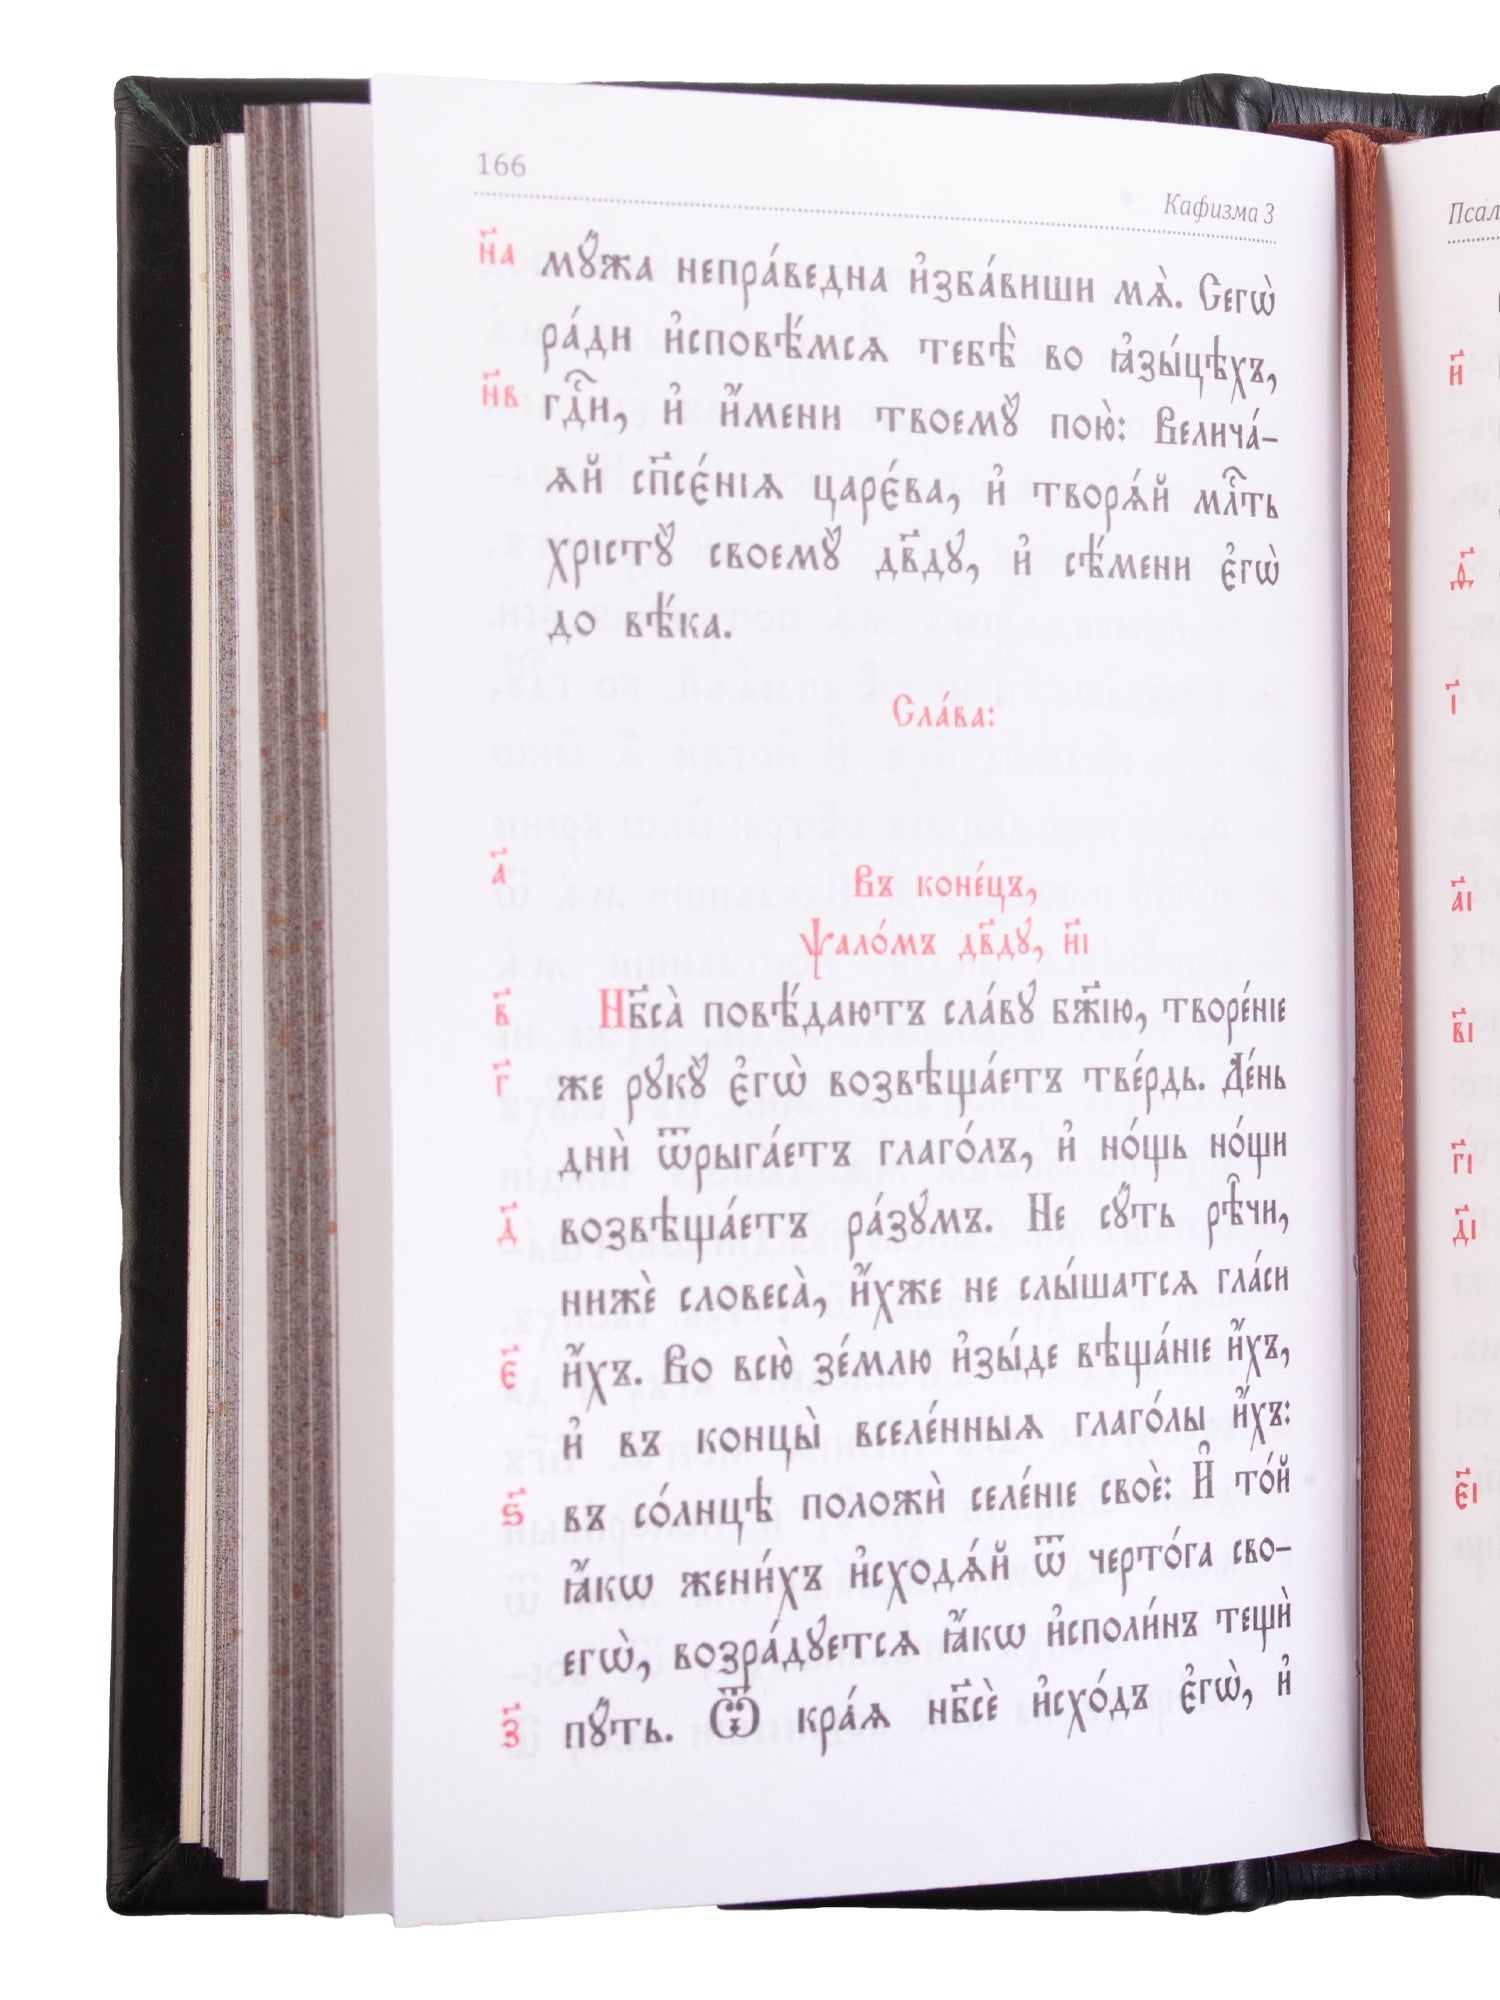 166
Кафизма 3
н҃а мꙋ́жа непра́ведна и҆зба́виши мѧ̀. Сегѡ̀
ра́ди и҆сповѣ́мсѧ тебѣ̀ во ꙗ҆зы́цѣхъ,
н҃в гдⷭ҇и, и҆ и҆́мени твоемꙋ̀ пою̀: Велича́-
ѧй сп҃се́нїѧ царе́ва, и҆ творѧ́й млⷭ҇ть
хрїстꙋ̀ своемꙋ̀ дв҃дꙋ, и҆ сѣ́мени є҆гѡ̀
до вѣ́ка.
Сла́ва:
а҃ Въ коне́цъ,
ѱало́мъ дв҃дꙋ, и҃і
в҃ Нб҃са̀ повѣ́даютъ сла́вꙋ бж҃їю, творе́нїе
г҃ же рꙋкꙋ̀ є҆гѡ̀ возвѣща́етъ тве́рдь. Де́нь
днѝ ѿрыга́етъ глаго́лъ, и҆ но́щь но́щи
д҃ возвѣща́етъ ра́зꙋмъ. Не сꙋ́ть рѣ̑чи,
нижѐ словеса̀, и҆̀хже не слы́шатсѧ гла́си
є҃ и҆́хъ. Во всю̀ зе́млю и҆зы́де вѣща́нїе и҆́хъ,
и҆ въ концы̀ вселе́нныѧ глаго́лы и҆́хъ:
ѕ҃ въ со́лнцѣ положѝ селе́нїе своѐ: И҆ то́й
ꙗ҆́кѡ жени́хъ и҆сходѧ́й ѿ черто́га сво-
егѡ̀, возра́дꙋетсѧ ꙗ҆́кѡ и҆споли́нъ тещѝ
з҃ пꙋ́ть. Ѿ кра́ѧ нб҃сѐ и҆схо́дъ є҆гѡ̀, и҆
Псал
и҃
ѳ҃
і҃
а҃і
в҃і
г҃і
д҃і
є҃і